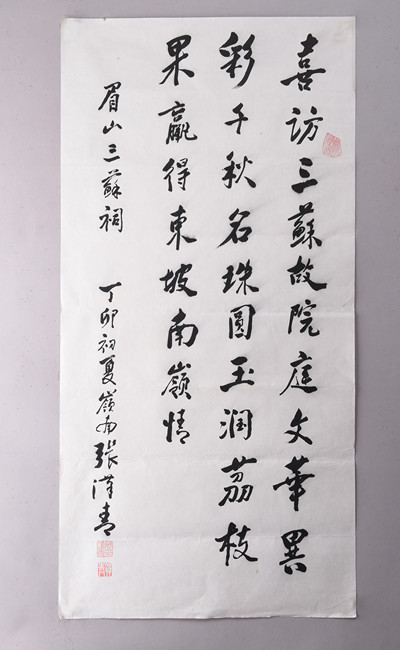 喜訪三蘇故院庭文華異
彩千秋名珠圓玉润荔枝
果贏得東坡南嶺情
眉山三蘇祠
丁卯初夏嶺南張漢青